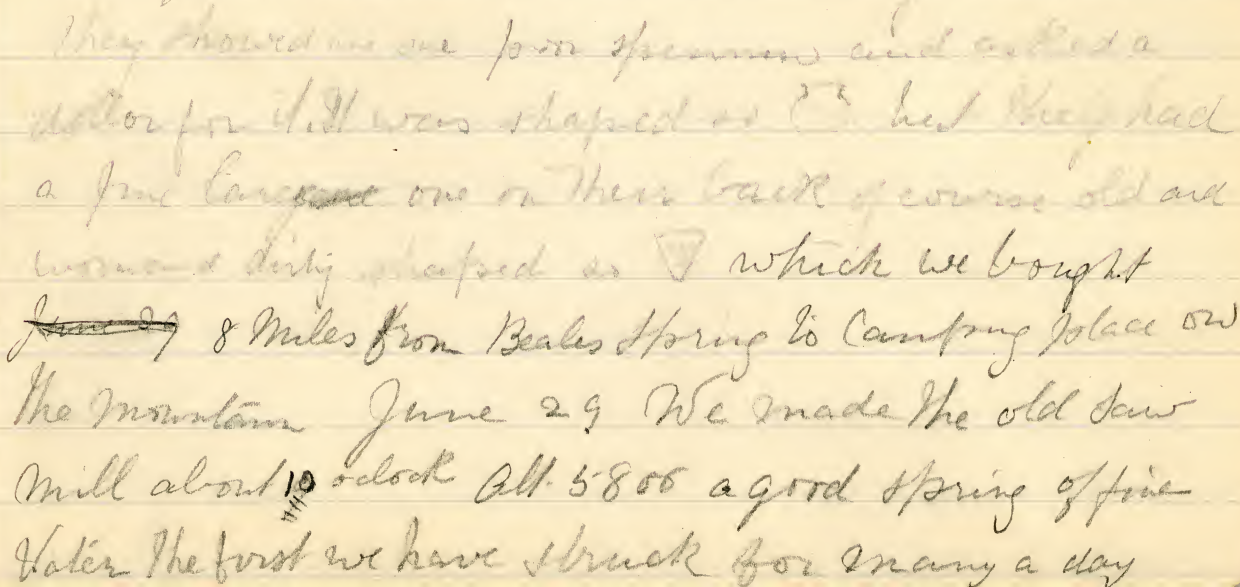 They showed me one poor specimen and asked a
dollar for it. It was shaped so but they had
a fine large one on their back of course old and
worn and dirty shaped so which we bought
June 29 8 Miles from Beales Spring to Camping place on
the Mountain June 29 We made the old Saw
Mill about 10 oclock Alt. 5800 a good spring of fine
Water the first we have struck for many a day